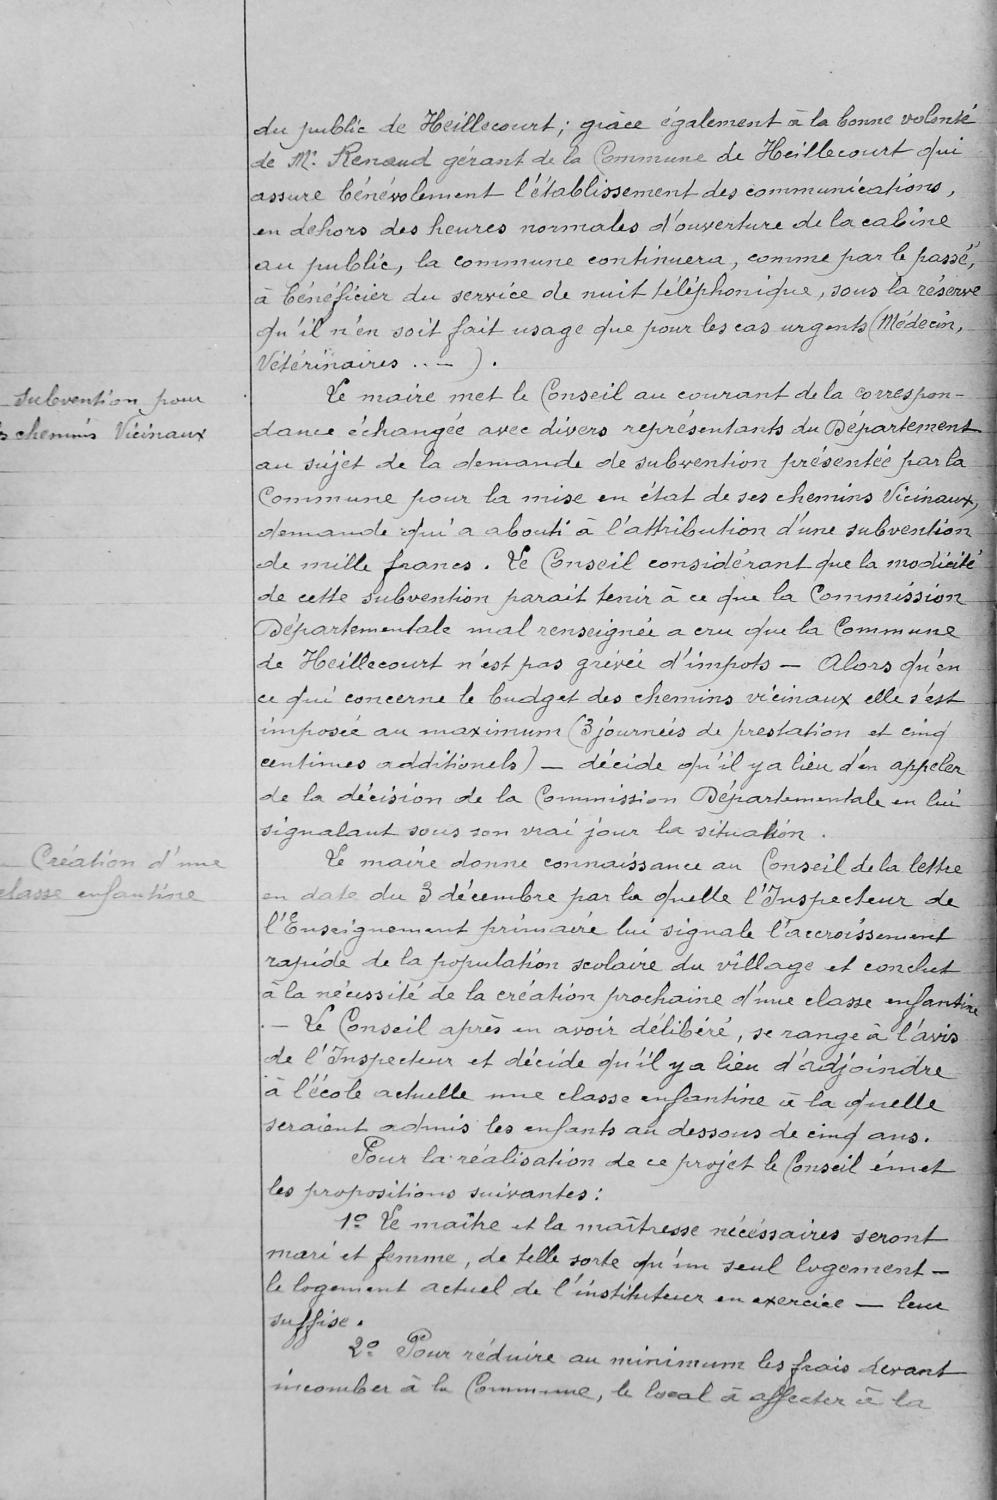 du public de Heillecourt; grâce également à la bonne volonté
de Mr. Renaud gérant de la Commune de Heillecourt qui
assure bénévolement l'établissement des communications,
en dehors des heures normales d'ouverture de la cabine
au public, la commune continuera, comme par le passé,
à bénéficier du service de nuit téléphonique, sous la réserve
qu'il n'en soit fait usage que pour les cas urgents (Médecin,
Vétérinaires ..—).
Subvention pour
chemins Vicinaux
Le maire met le Conseil au courant de la correspon-
dance échangée avec divers représentants du Département
au sujet de la demande de subvention présentée par la
Commune pour la mise en état de ses chemins Vicinaux,
demande qui a abouti à l'attribution d'une subvention
de mille francs. Le Conseil considérant que la modicité
de cette subvention parait tenir à ce que la Commission
Départementale mal renseignée a cru que la Commune
de Heillecourt n'est pas grévée d'impots — Alors qu'en
ce qui concerne le budget des chemins vicinaux elle s'est
imposée au maximum (3 journées de prestation et cinq
centimes additionels) — décide qu'il y a lieu d'en appeler
de la décision de la Commission Départementale en lui
signalant sous son vrai jour la situation.
— Création d'une
classe enfantine
Le maire donne connaissance au Conseil de la lettre
en date du 3 décembre par la quelle l'Inspecteur de
l'Enseignement primaire lui signale l'accroissement
rapide de la population scolaire du village et conclut
à la nécessité de la création prochaine d'une classe enfantine
.— Le Conseil après en avoir délibéré, se range à l'avis
de l'Inspecteur et décide qu'il y a lieu d'adjoindre
à l'école actuelle une classe enfantine à la quelle
seraient admis les enfants au dessous de cinq ans.
Pour la réalisation de ce projet le Conseil émet
les propositions suivantes:
1º Le maître et la maîtresse nécéssaires seront
mari et femme, de telle sorte qu'un seul logement —
le logement actuel de l'instituteur en exercice — leur
suffise.
2º Pour réduire au minimum les frais devant
incomber à la Commune, le local à affecter à la